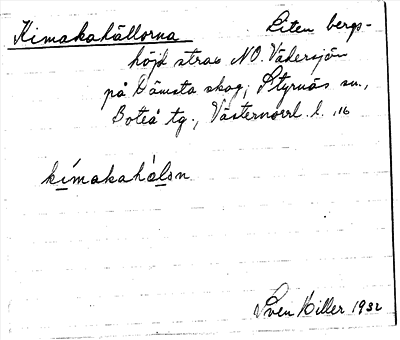 Kimakahällorna Liten bergs-
höjd strax NO. Vädersjön
på Dämsta skog, Styrnäs sn.,
Boteå tg., Västernorrl. l. 
kimakahälsn
Sven Hiller 1932